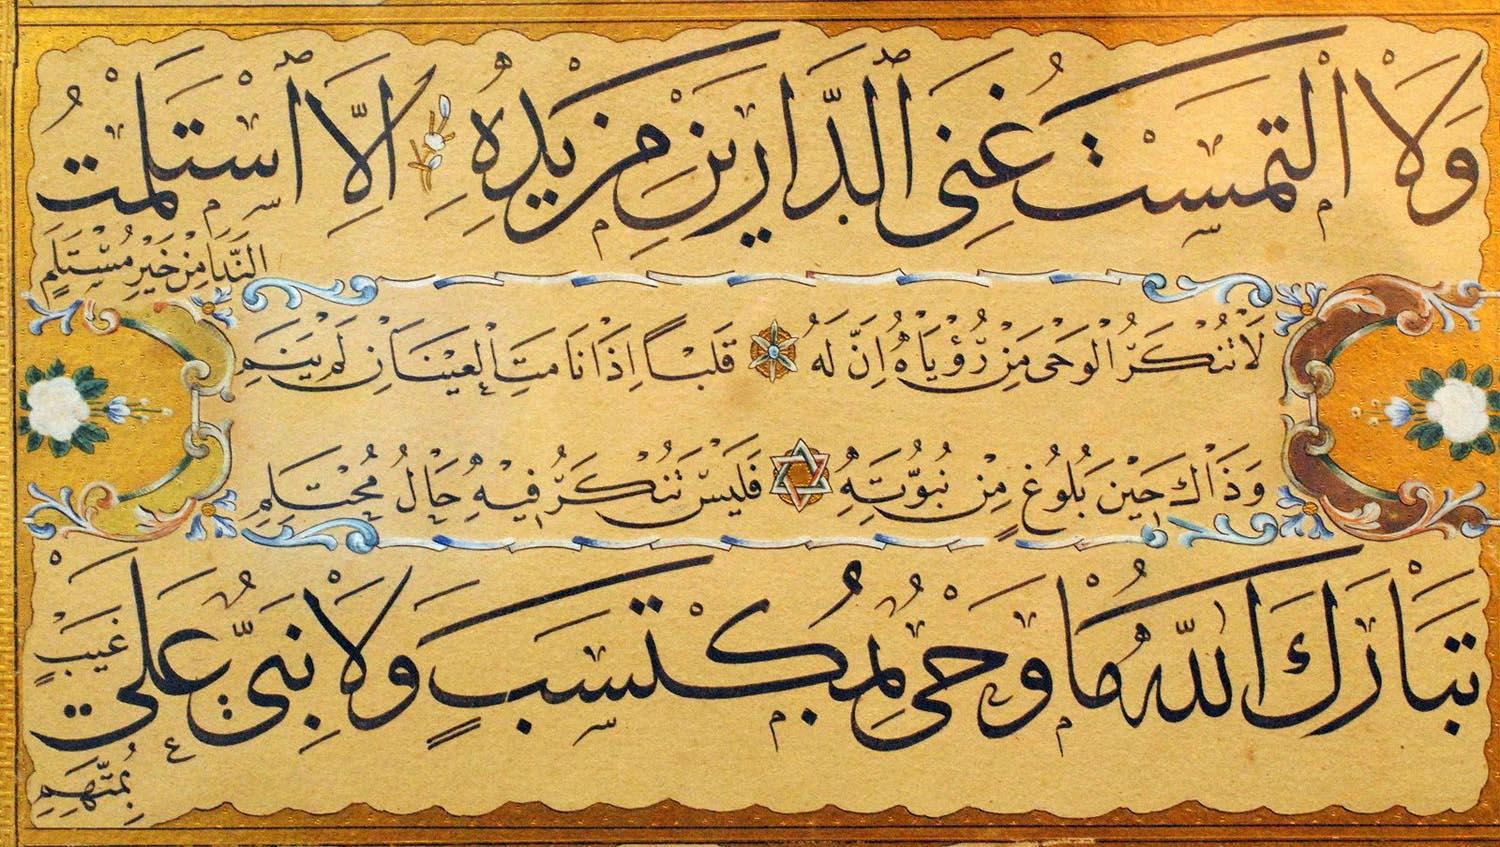 وَلَا الْتَمَسْتُ غِنَى الدَّارَيْنِ مِنْ يَدِهِ اِلَّا اسْتَلَمْتُ
النَّدَا مِنْ خَيْرِ مُسْتَلَمٍ
لَا تُنْكِرُ الْوَحْىَ مِنْ رُؤْيَاهُ اِنَّ لَهُ قَلْبًا اِذَا نَامَتِ الْعَيْنَانِ لَمْ يَنَمِ
وَذَاكَ حِينَ بُلُوغٍ مِنْ نُبُوَّتِهِ فَلَيْسَ تُنْكَرُ فِيهِ حَالُ مُحْتَلِمِ
تَبَارَكَ اللّٰهُ مَا وَحْىٌ بِمُكْتَسَبٍ وَلَا نَبِىٌّ عَلَى
غَيْبٍ
بِمُتَّهَمِ